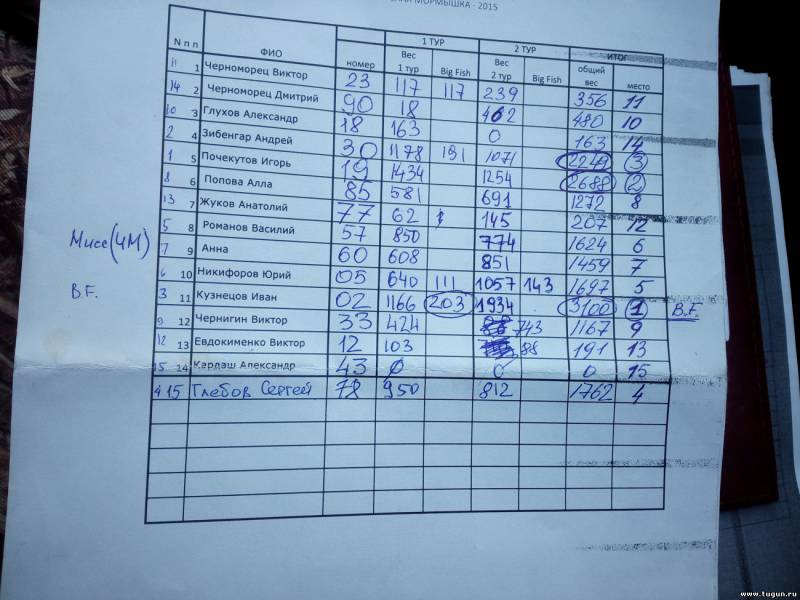 МОРМЫШКА - 2015
N п п ФИО номер 1 ТУР Вес 1 тур Big Fish 2 ТУР Вес 2 тур Big Fish ИТОГ общий вес место
11 1 Черноморец Виктор 23 117 117 239 356 11
14 2 Черноморец Дмитрий 90 18 462 480 10
10 3 Глухов Александр 18 163 0 163 14
2 4 Зибенгар Андрей 30 1178 191 1071 2249 3
1 5 Почекутов Игорь 19 1434 1254 2688 2
8 6 Попова Алла 85 581 691 1272 8
13 7 Жуков Анатолий 77 62 145 207 12
5 8 Романов Василий 57 850 774 1624 6
Мисс (ЧМ)
7 9 Анна 60 608 851 1459 7
6 10 Никифоров Юрий 05 640 111 1057 143 1697 5
B.F.
3 11 Кузнецов Иван 02 1166 203 1934 3100 1 B.F.
9 12 Чернигин Виктор 33 424 743 1167 9
12 13 Евдокименко Виктор 12 103 88 191 13
15 14 Кардаш Александр 43 0 0 0 15
4 15 Глебов Сергей 78 950 812 1762 4
www.tugun.ru